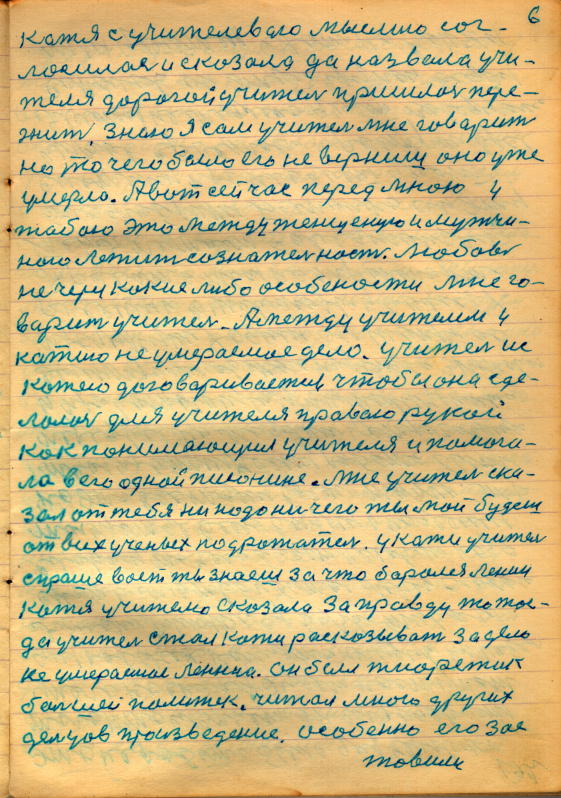 6
катя с учителеваго мыслию сог-
лосилася и скозала да назвала учи-
теля дорогой учител пришлося пере-
жит, знаю я сам учител мне говарит
но то чего было его не вернишу оно уже
умерло. А вот сейчас перед мною и
табою это между женщеную и мужчи-
ною лежит сознателност. Любов
не чери кокие либо особености мне го-
варит учител. А между учителим и
катию не умераемое дело. учител ис
кожею договаривается чтобы она сде-
лолася для учителя праваю рукой
кок понимающия учителя и помога-
ла в его одной писонине. мне учител ска-
зал от тебя ни нодо ничего ты мой будеш
от всих ученых подрожател. у кати учител
спрашевоет ты знаеш за что боролся Ленин
катя учителю скозала за правду то тог-
да учител стал кати расказыват за дело
не умераемое Ленина. он был тиоретик
большей политек. читал много других
делцов произведение. особенно его зае
товили